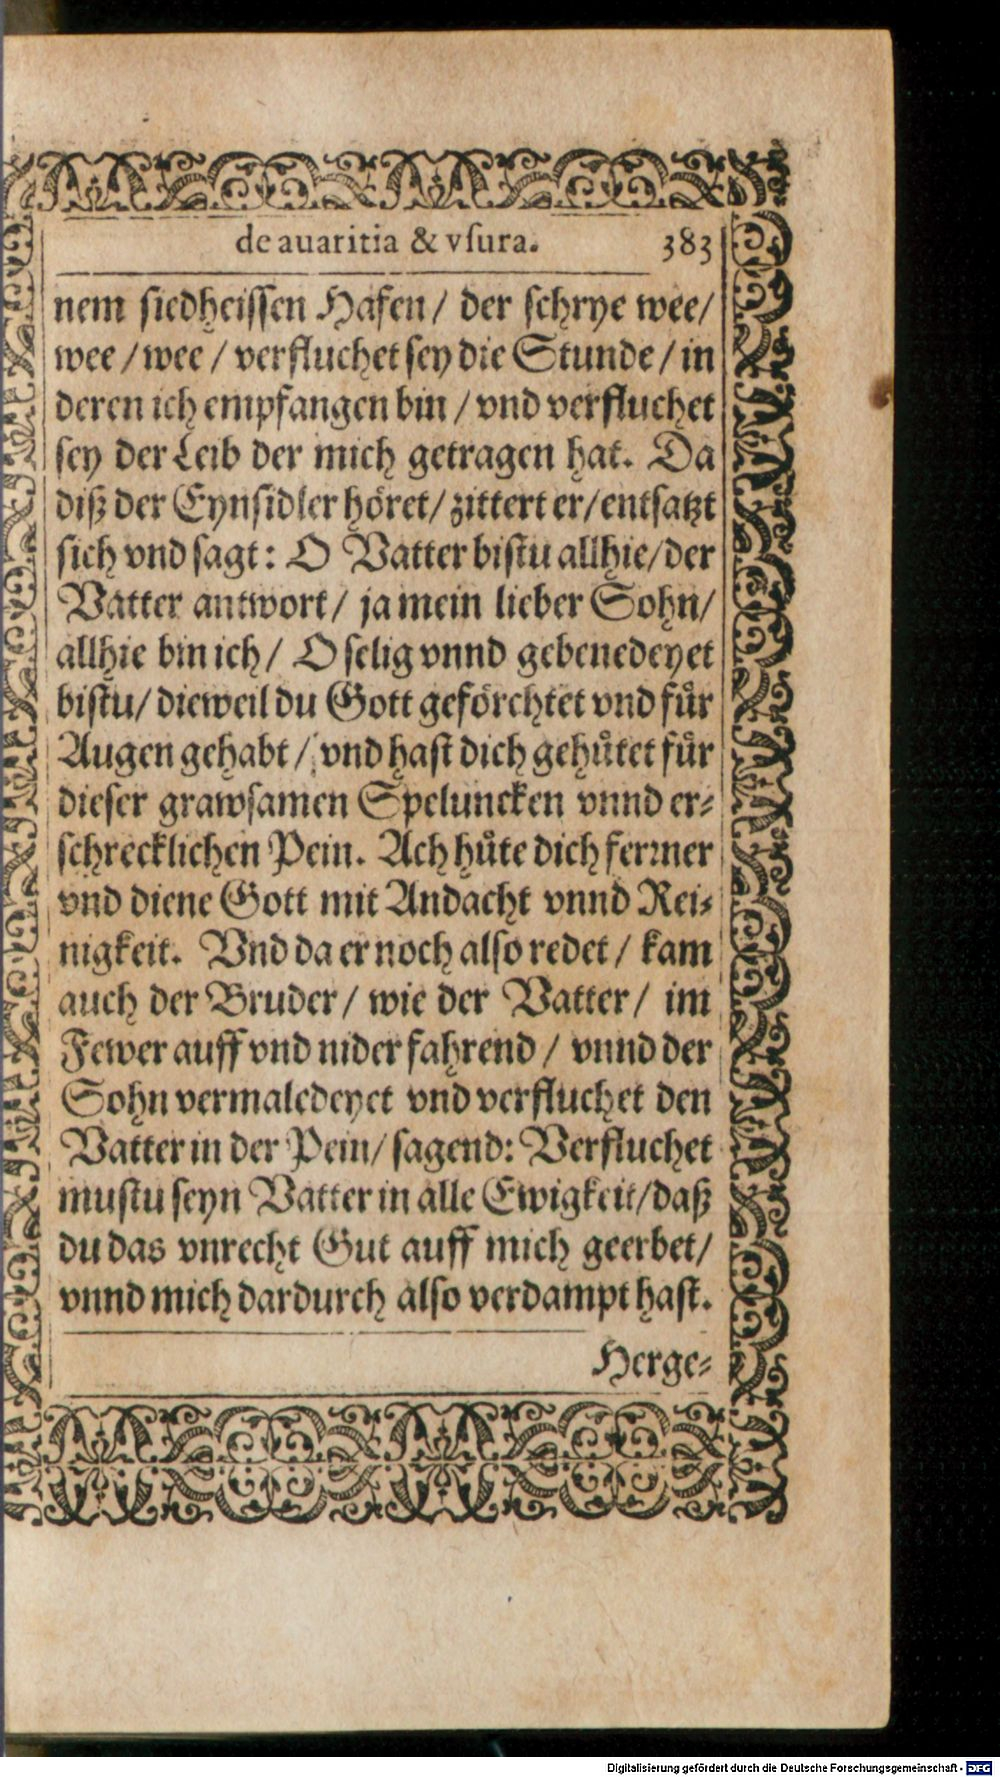 de auaritia & vſura. 383
nem ſiedheiſſen Hafen/ der ſchrye wee/
wee / wee / verfluchet ſey die Stunde / in
deren ich empfangen bin / vnd verfluchet
ſey der Leib der mich getragen hat. Da
diß der Eynſidler höret/ zittert er/ entſatzt
ſich vnd ſagt: O Vatter biſtu allhie/ der
Vatter antwort/ ja mein lieber Sohn/
allhie bin ich/ O ſelig vnnd gebenedeyet
biſtu/ dieweil du Gott geförchtet vnd fuͤr
Augen gehabt / vnd haſt dich gehuͤtet fuͤr
dieſer grawſamen Speluncken vnnd er⸗
ſchrecklichen Pein. Ach huͤte dich ferrner
vnd diene Gott mit Andacht vnnd Rei⸗
nigkeit. Vnd da er noch alſo redet / kam
auch der Bruder/ wie der Vatter/ im
Fewer auff vnd nider fahrend / vnnd der
Sohn vermaledeyet vnd verfluchet den
Vatter in der Pein/ ſagend: Verfluchet
muſtu ſeyn Vatter in alle Ewigkeit/ daß
du das vnrecht Gut auff mich geerbet/
vnnd mich dardurch alſo verdampt haſt.
Herge⸗
Digitalisierung gefördert durch die Deutsche Forschungsgemeinschaft - DFG